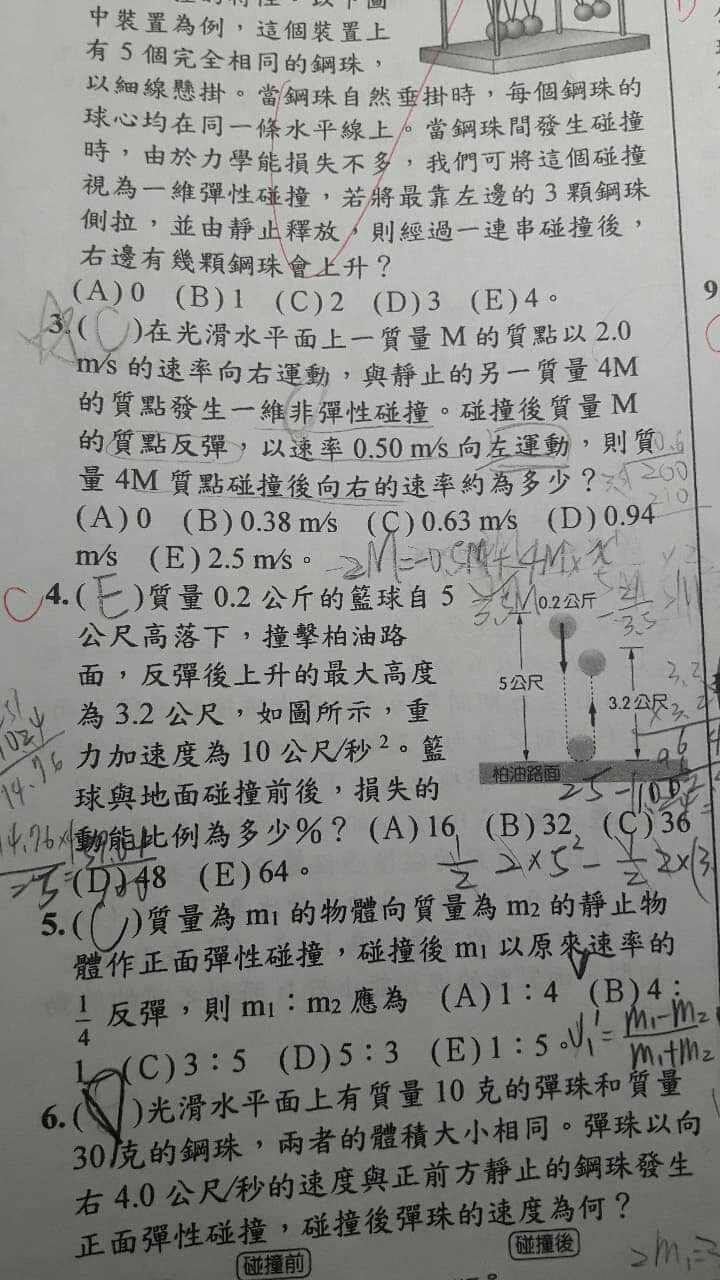 中裝置為例，這個裝置上
有5個完全相同的鋼珠，
以細線懸掛。當鋼珠自然垂掛時，每個鋼珠的
球心均在同一條水平線上。當鋼珠間發生碰撞
時，由於力學能損失不多，我們可將這個碰撞
視為一維彈性碰撞，若將最靠左邊的3顆鋼珠
側拉，並由靜止釋放，則經過一連串碰撞後，
右邊有幾顆鋼珠會上升？
(A)0 (B)1 (C)2 (D)3 (E)4。
9
3.(C)在光滑水平面上一質量M的質點以2.0
m/s的速率向右運動，與靜止的另一質量4M
的質點發生一維非彈性碰撞。碰撞後質量M
的質點反彈，以速率0.50 m/s向左運動，則質
量4M質點碰撞後向右的速率約為多少？
(A)0 (B)0.38 m/s (C)0.63 m/s (D)0.94
m/s (E)2.5 m/s。
2M=-0.5M+4M×x
4.(E)質量0.2公斤的籃球自5
公尺高落下，撞擊柏油路
面，反彈後上升的最大高度
為3.2公尺，如圖所示，重
力加速度為10公尺/秒²。籃
球與地面碰撞前後，損失的
動能比例為多少%？(A)16 (B)32 (C)36
(D)48 (E)64。
0.2公斤
5公尺
3.2公尺
柏油路面
5.(C)質量為m₁的物體向質量為m₂的靜止物
體作正面彈性碰撞，碰撞後m₁以原來速率的
1/4反彈，則m₁：m₂應為 (A)1：4 (B)4：
1 (C)3：5 (D)5：3 (E)1：5。
V₁'=m₁-m₂/m₁+m₂
6.( )光滑水平面上有質量10克的彈珠和質量
30克的鋼珠，兩者的體積大小相同。彈珠以向
右4.0公尺/秒的速度與正前方靜止的鋼珠發生
正面彈性碰撞，碰撞後彈珠的速度為何？
碰撞前
碰撞後